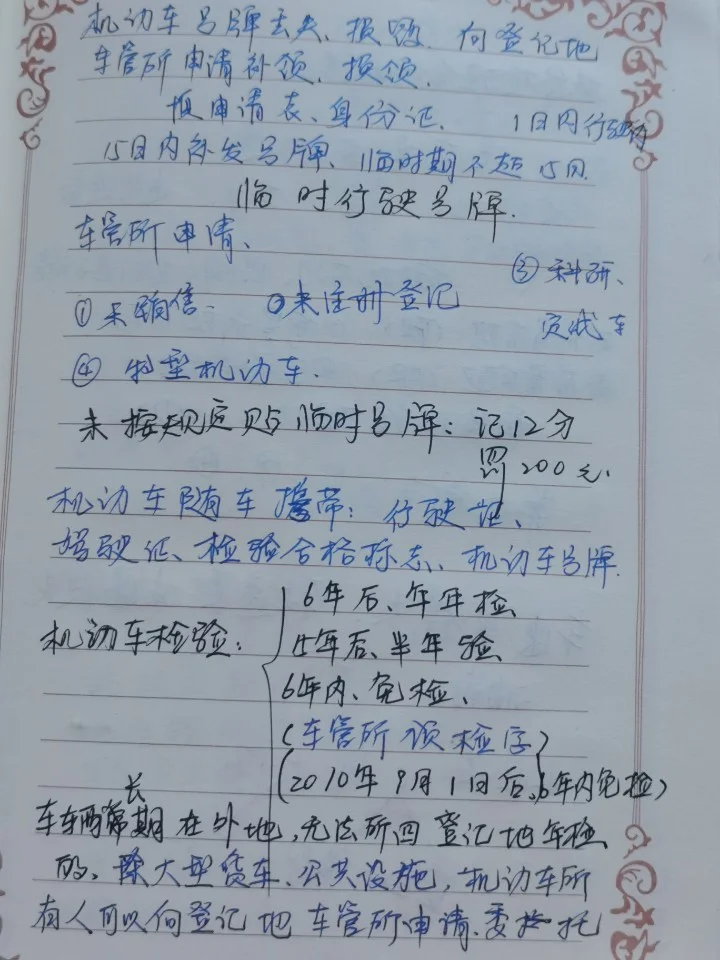 机动车号牌丢失、损毁、向登记地
车管所申请补领、换领.
报申请表、身份证.
1日内行驶证
15日内补发号牌、临时期不超15日.
临时行驶号牌.
车管所申请、
③科研、
①未销售. ②未注册登记
定状车
④特型机动车.
未按规定贴临时号牌:记12分
罚200元.
机动车随车携带:行驶证、
驾驶证、检验合格标志、机动车号牌.
6年后、年年检、
机动车检验:
15年后、半年验、
6年内、免检、
(车管所领检字)
(2010年9月1日后,6年内免检)
长
车辆常期在外地,无法所回登记地年检
的、除大型货车、公共设施,机动车所
有人可以向登记地车管所申请、委托